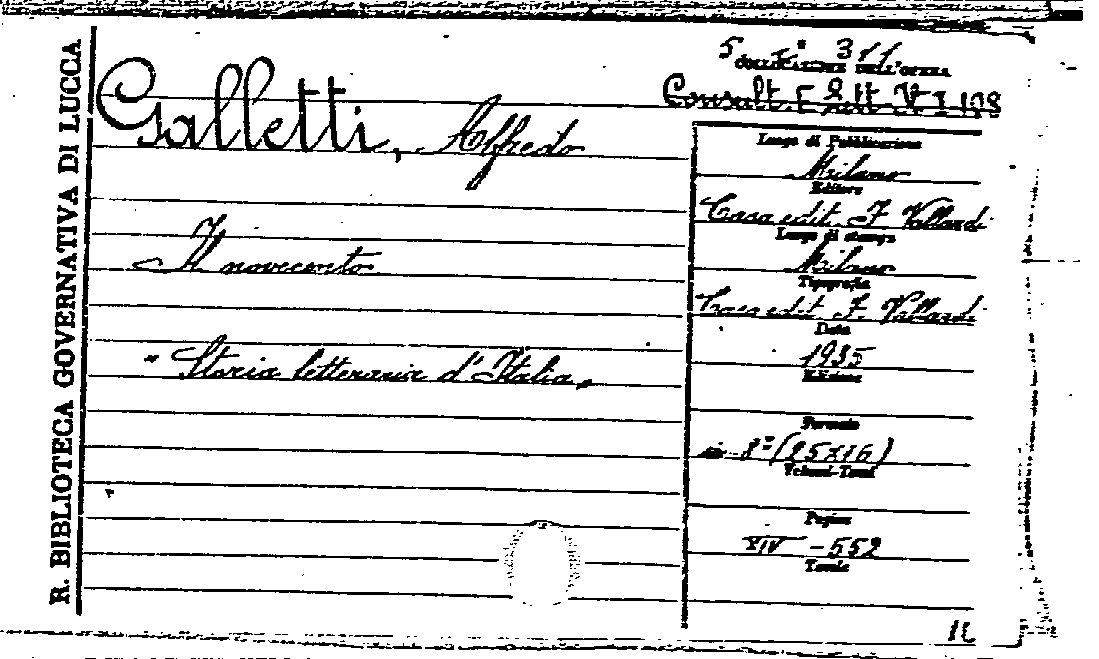 R. BIBLIOTECA GOVERNATIVA DI LUCCA
COLLOCAZIONE DELL'OPERA
Consult.
Galletti, Alfredo
Il novecento
"Storia letteraria d'Italia"
Luogo di Pubblicazione
Milano
Editore
Casa edit. F. Vallardi
Luogo di stampa
Milano
Tipografia
Casa edit. F. Vallardi
Data
1935
Edizione
Formato
in 8° (25x16)
Volumi-Tomi
Pagine
XIV-552
Tavole